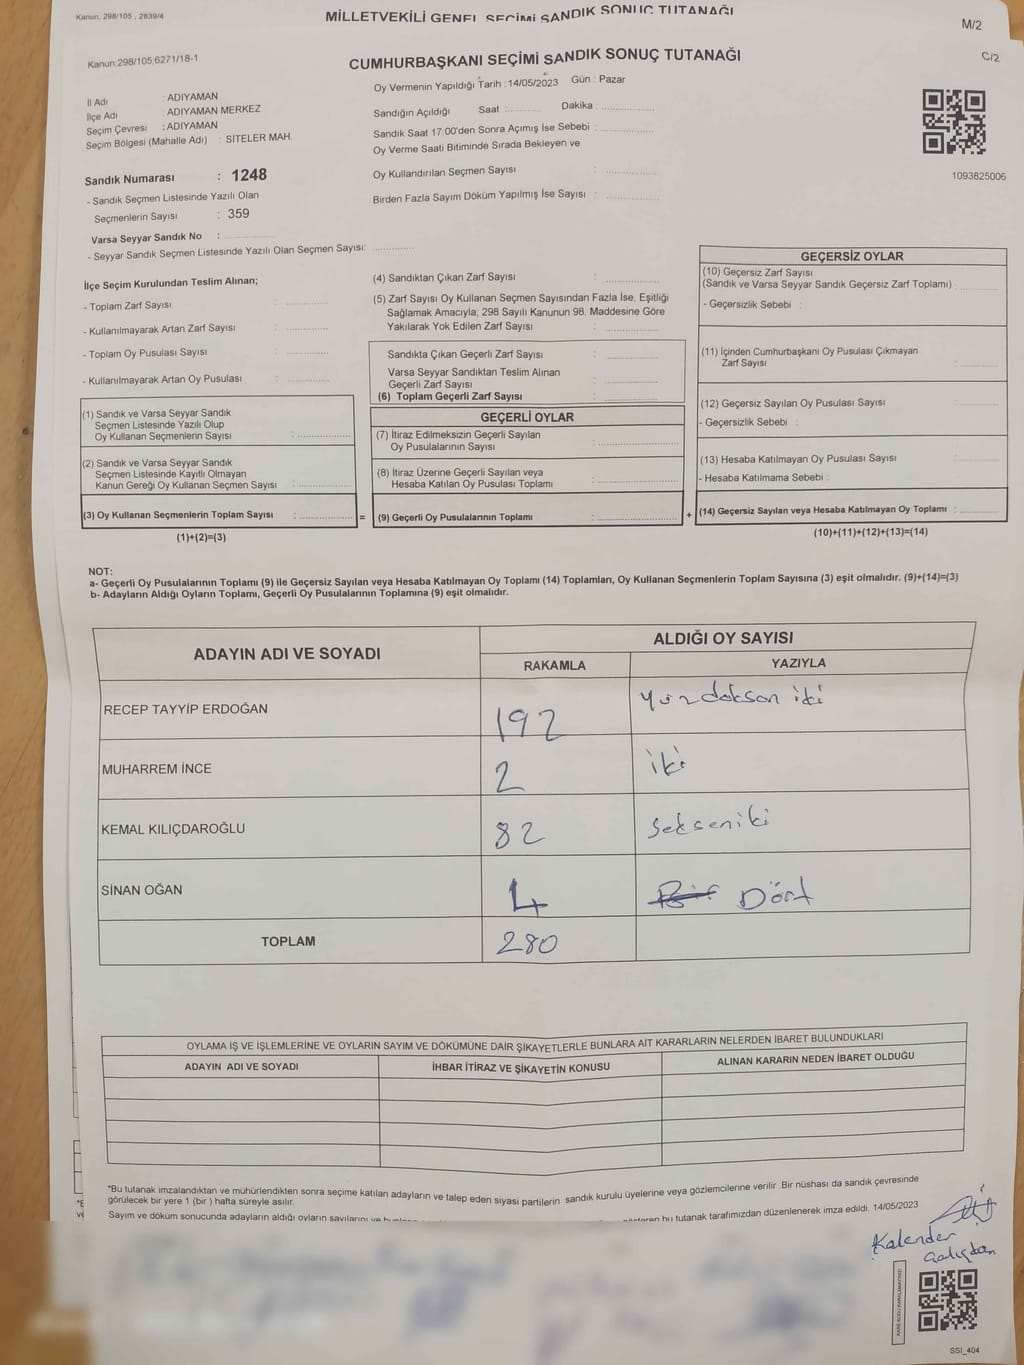 Kanun: 298/105 , 2839/4
MİLLETVEKİLİ GENEL SEÇİMİ SANDIK SONUÇ TUTANAĞI
M/2
Kanun:298/105;6271/18-1
CUMHURBAŞKANI SEÇİMİ SANDIK SONUÇ TUTANAĞI
C/2
İl Adı : ADIYAMAN
İlçe Adı : ADIYAMAN MERKEZ
Seçim Çevresi : ADIYAMAN
Seçim Bölgesi (Mahalle Adı) : SİTELER MAH.
Oy Vermenin Yapıldığı Tarih : 14/05/2023 Gün : Pazar
Sandığın Açıldığı Saat :............ Dakika :..................
Sandık Saat 17:00'den Sonra Açımış İse Sebebi :..................
Oy Verme Saati Bitiminde Sırada Bekleyen ve
Oy Kullandırılan Seçmen Sayısı :..................
Birden Fazla Sayım Döküm Yapılmış İse Sayısı :..................
1093825006
Sandık Numarası : 1248
- Sandık Seçmen Listesinde Yazılı Olan
Seçmenlerin Sayısı : 359
Varsa Seyyar Sandık No :..................
- Seyyar Sandık Seçmen Listesinde Yazılı Olan Seçmen Sayısı: ..............
İlçe Seçim Kurulundan Teslim Alınan;
- Toplam Zarf Sayısı : ..............
- Kullanılmayarak Artan Zarf Sayısı : ..............
- Toplam Oy Pusulası Sayısı : ..............
- Kullanılmayarak Artan Oy Pusulası : ..............
(1) Sandık ve Varsa Seyyar Sandık
Seçmen Listesinde Yazılı Olup
Oy Kullanan Seçmenlerin Sayısı :..................
(2) Sandık ve Varsa Seyyar Sandık
Seçmen Listesinde Kayıtlı Olmayan
Kanun Gereği Oy Kullanan Seçmen Sayısı :..................
(3) Oy Kullanan Seçmenlerin Toplam Sayısı :.................. =
(1)+(2)=(3)
(4) Sandıktan Çıkan Zarf Sayısı :..................
(5) Zarf Sayısı Oy Kullanan Seçmen Sayısından Fazla İse, Eşitliği
Sağlamak Amacıyla; 298 Sayılı Kanunun 98. Maddesine Göre
Yakılarak Yok Edilen Zarf Sayısı :..................
Sandıkta Çıkan Geçerli Zarf Sayısı :..................
Varsa Seyyar Sandıktan Teslim Alınan
Geçerli Zarf Sayısı :..................
(6) Toplam Geçerli Zarf Sayısı :..................
GEÇERLİ OYLAR
(7) İtiraz Edilmeksizin Geçerli Sayılan
Oy Pusulalarının Sayısı :..................
(8) İtiraz Üzerine Geçerli Sayılan veya
Hesaba Katılan Oy Pusulası Toplamı :..................
(9) Geçerli Oy Pusulalarının Toplamı :.................. +
GEÇERSİZ OYLAR
(10) Geçersiz Zarf Sayısı
(Sandık ve Varsa Seyyar Sandık Geçersiz Zarf Toplamı) : ............
- Geçersizlik Sebebi :
(11) İçinden Cumhurbaşkanı Oy Pusulası Çıkmayan
Zarf Sayısı : ............
(12) Geçersiz Sayılan Oy Pusulası Sayısı : ............
- Geçersizlik Sebebi :
(13) Hesaba Katılmayan Oy Pusulası Sayısı : ............
- Hesaba Katılmama Sebebi :
(14) Geçersiz Sayılan veya Hesaba Katılmayan Oy Toplamı : ............
(10)+(11)+(12)+(13)=(14)
NOT:
a- Geçerli Oy Pusulalarının Toplamı (9) ile Geçersiz Sayılan veya Hesaba Katılmayan Oy Toplamı (14) Toplamları, Oy Kullanan Seçmenlerin Toplam Sayısına (3) eşit olmalıdır. (9)+(14)=(3)
b- Adayların Aldığı Oyların Toplamı, Geçerli Oy Pusulalarının Toplamına (9) eşit olmalıdır.
ADAYIN ADI VE SOYADI ALDIĞI OY SAYISI
RAKAMLA YAZIYLA
RECEP TAYYİP ERDOĞAN 192 yüzdoksan iki
MUHARREM İNCE 2 iki
KEMAL KILIÇDAROĞLU 82 Sekseniki
SİNAN OĞAN 4 Bir Dört
TOPLAM 280
OYLAMA İŞ VE İŞLEMLERİNE VE OYLARIN SAYIM VE DÖKÜMÜNE DAİR ŞİKAYETLERLE BUNLARA AİT KARARLARIN NELERDEN İBARET BULUNDUKLARI
ADAYIN ADI VE SOYADI İHBAR İTİRAZ VE ŞİKAYETİN KONUSU ALINAN KARARIN NEDEN İBARET OLDUĞU
"Bu tutanak imzalandıktan ve mühürlendikten sonra seçime katılan adayların ve talep eden siyasi partilerin sandık kurulu üyelerine veya gözlemcilerine verilir .Bir nüshası da sandık çevresinde
görülecek bir yere 1 (bir ) hafta süreyle asılır.
Sayım ve döküm sonucunda adayların aldığı oyların sayılarını ve bu tutanak tarafımızdan düzenlenerek imza edildi. 14/05/2023
Kalender
Çalışkan
SSI_404